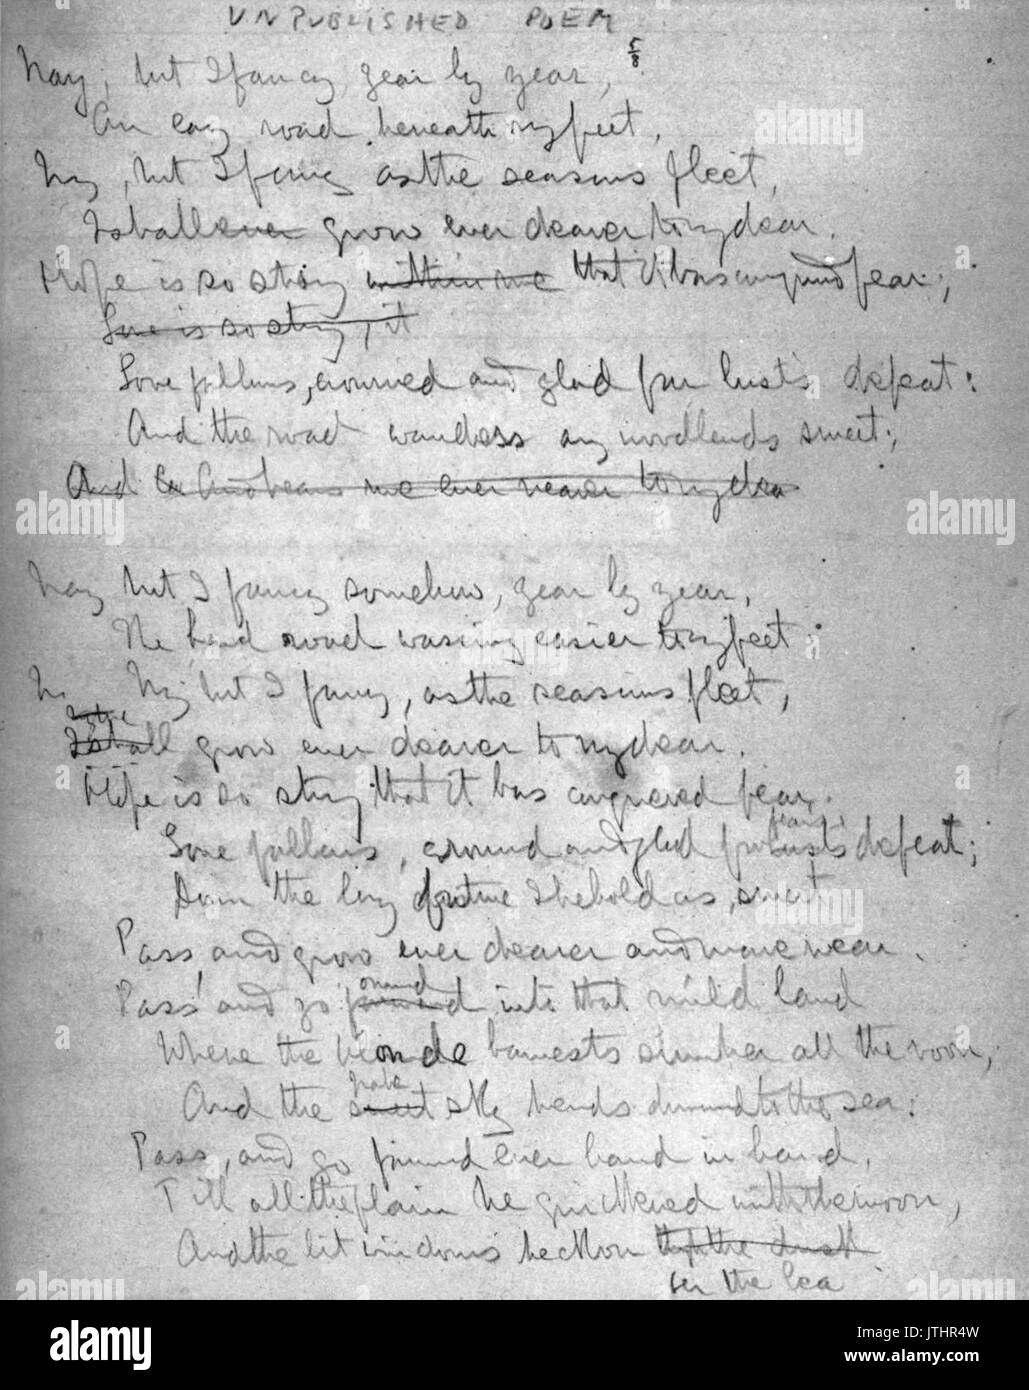 UNPUBLISHED POEM
5/8
Nay, but I fancy year by year,
An easy road beneath my feet,
Nay, but I fancy as the seasons fleet,
I shall ever grow ever dearer to my dear.
Hope is so strong within me that it has conquered fear;
Love is so strong, it
Love follows, crowned and glad for lust's defeat:
And the road wanders by woodlands sweet;
And me ever nearer to my dea
Nay but I fancy somehow, year by year,
The hard road waxing easier to my feet:
Nay, but I fancy, as the seasons fleet,
I shall grow ever dearer to my dear.
Hope is so strong that it has conquered fear;
Love follows, crowned and glad for fear's lust's defeat;
Down the long future I behold us, sweet
Pass, and grow ever dearer and more near.
Pass and go onward forward into that mild land
Where the blonde harvests slumber all the noon,
And the pale sweet sky bends downward to the sea:
Pass, and go forward ever hand in hand,
Till all the plain be quickened with the moon,
And the lit windows beckon through the dusk
o'er the lea
alamy
a
alamy
Image ID: JTHR4W
www.alamy.com